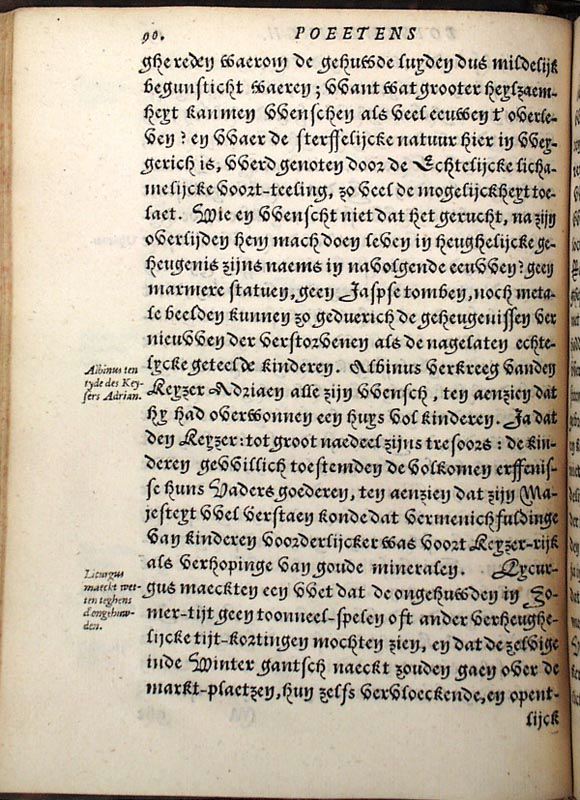 90. POEETENS
ghereden waerom de gehuwde luyden dus mildelijk
begunsticht waeren; VVant wat grooter heylzaem-
heyt kanmen VVenschen als veel eeuwen t' overle-
ven? en VVaer de sterffelijcke natuur hier in VVey-
gerich is, VVerd genoten door de Echtelijcke licha-
melijcke voort-teeling, zo veel de mogelijckheyt toe-
laet. Wie en VVenscht niet dat het gerucht, na zijn
overlijden hem mach doen leven in heughelijcke ge-
heugenis zijns naems in navolgende eeuvven? geen
marmere statuen, geen Jaspse tomben, noch meta-
le beelden kunnen zo geduerich de geheugenissen ver
nieuvven der verstorvenen als de nagelaten echte-
lycke geteelde kinderen. Albinus verkreeg vanden
Keyzer Adriaen alle zijn VVensch, ten aenzien dat
hy had overwonnen een huys vol kinderen. Ja dat
den Keyzer: tot groot naedeel zijns tresoors: de kin-
deren gevvillich toestemden de volkomen erffenis-
se huns Vaders goederen, ten aenzien dat zijn Ma-
jesteyt VVel verstaen konde dat vermenichfuldinge
van kinderen voorderlijcker was voort Keyzer-rijk
als verhopinge van goude mineralen. Lycur-
gus maeckten een VVet dat de ongehuwden in Zo-
mer-tijt geen toonneel-spelen oft ander verheughe-
lijcke tijt-kortingen mochten zien, en dat de zelvige
inde Winter gantsch naeckt zouden gaen over de
markt-plaetzen, hun zelfs vervloeckende, en opent-
lijck
Albinus ten
tyde des Key-
sers Adrian.
Licurgus
maeckt wet-
ten teghens
d'ongehuw-
den.